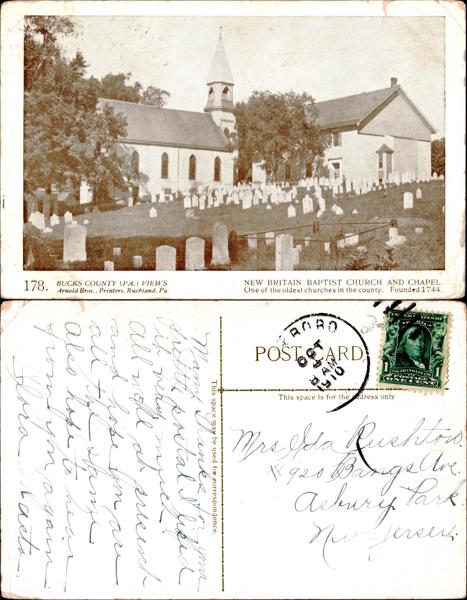 178. BUCKS COUNTY (PA.) VIEWS.
Arnold Bros., Printers, Rushland, Pa.
NEW BRITAIN BAPTIST CHURCH AND CHAPEL.
One of the oldest churches in the county. Founded 1744.
POST CARD
This space is for the address only
This space may be used for correspondence.
BORO
OCT
AM
1910
POSTAGE
1 ONE CENT 1
Mrs Ida Rushton
920 Bangs Ave.
Asbury Park
New Jersey.
Many thanks for your
postal I liked
it very much
All well at present
and hope you are
all the same
also hope to hear
from you again
Flora